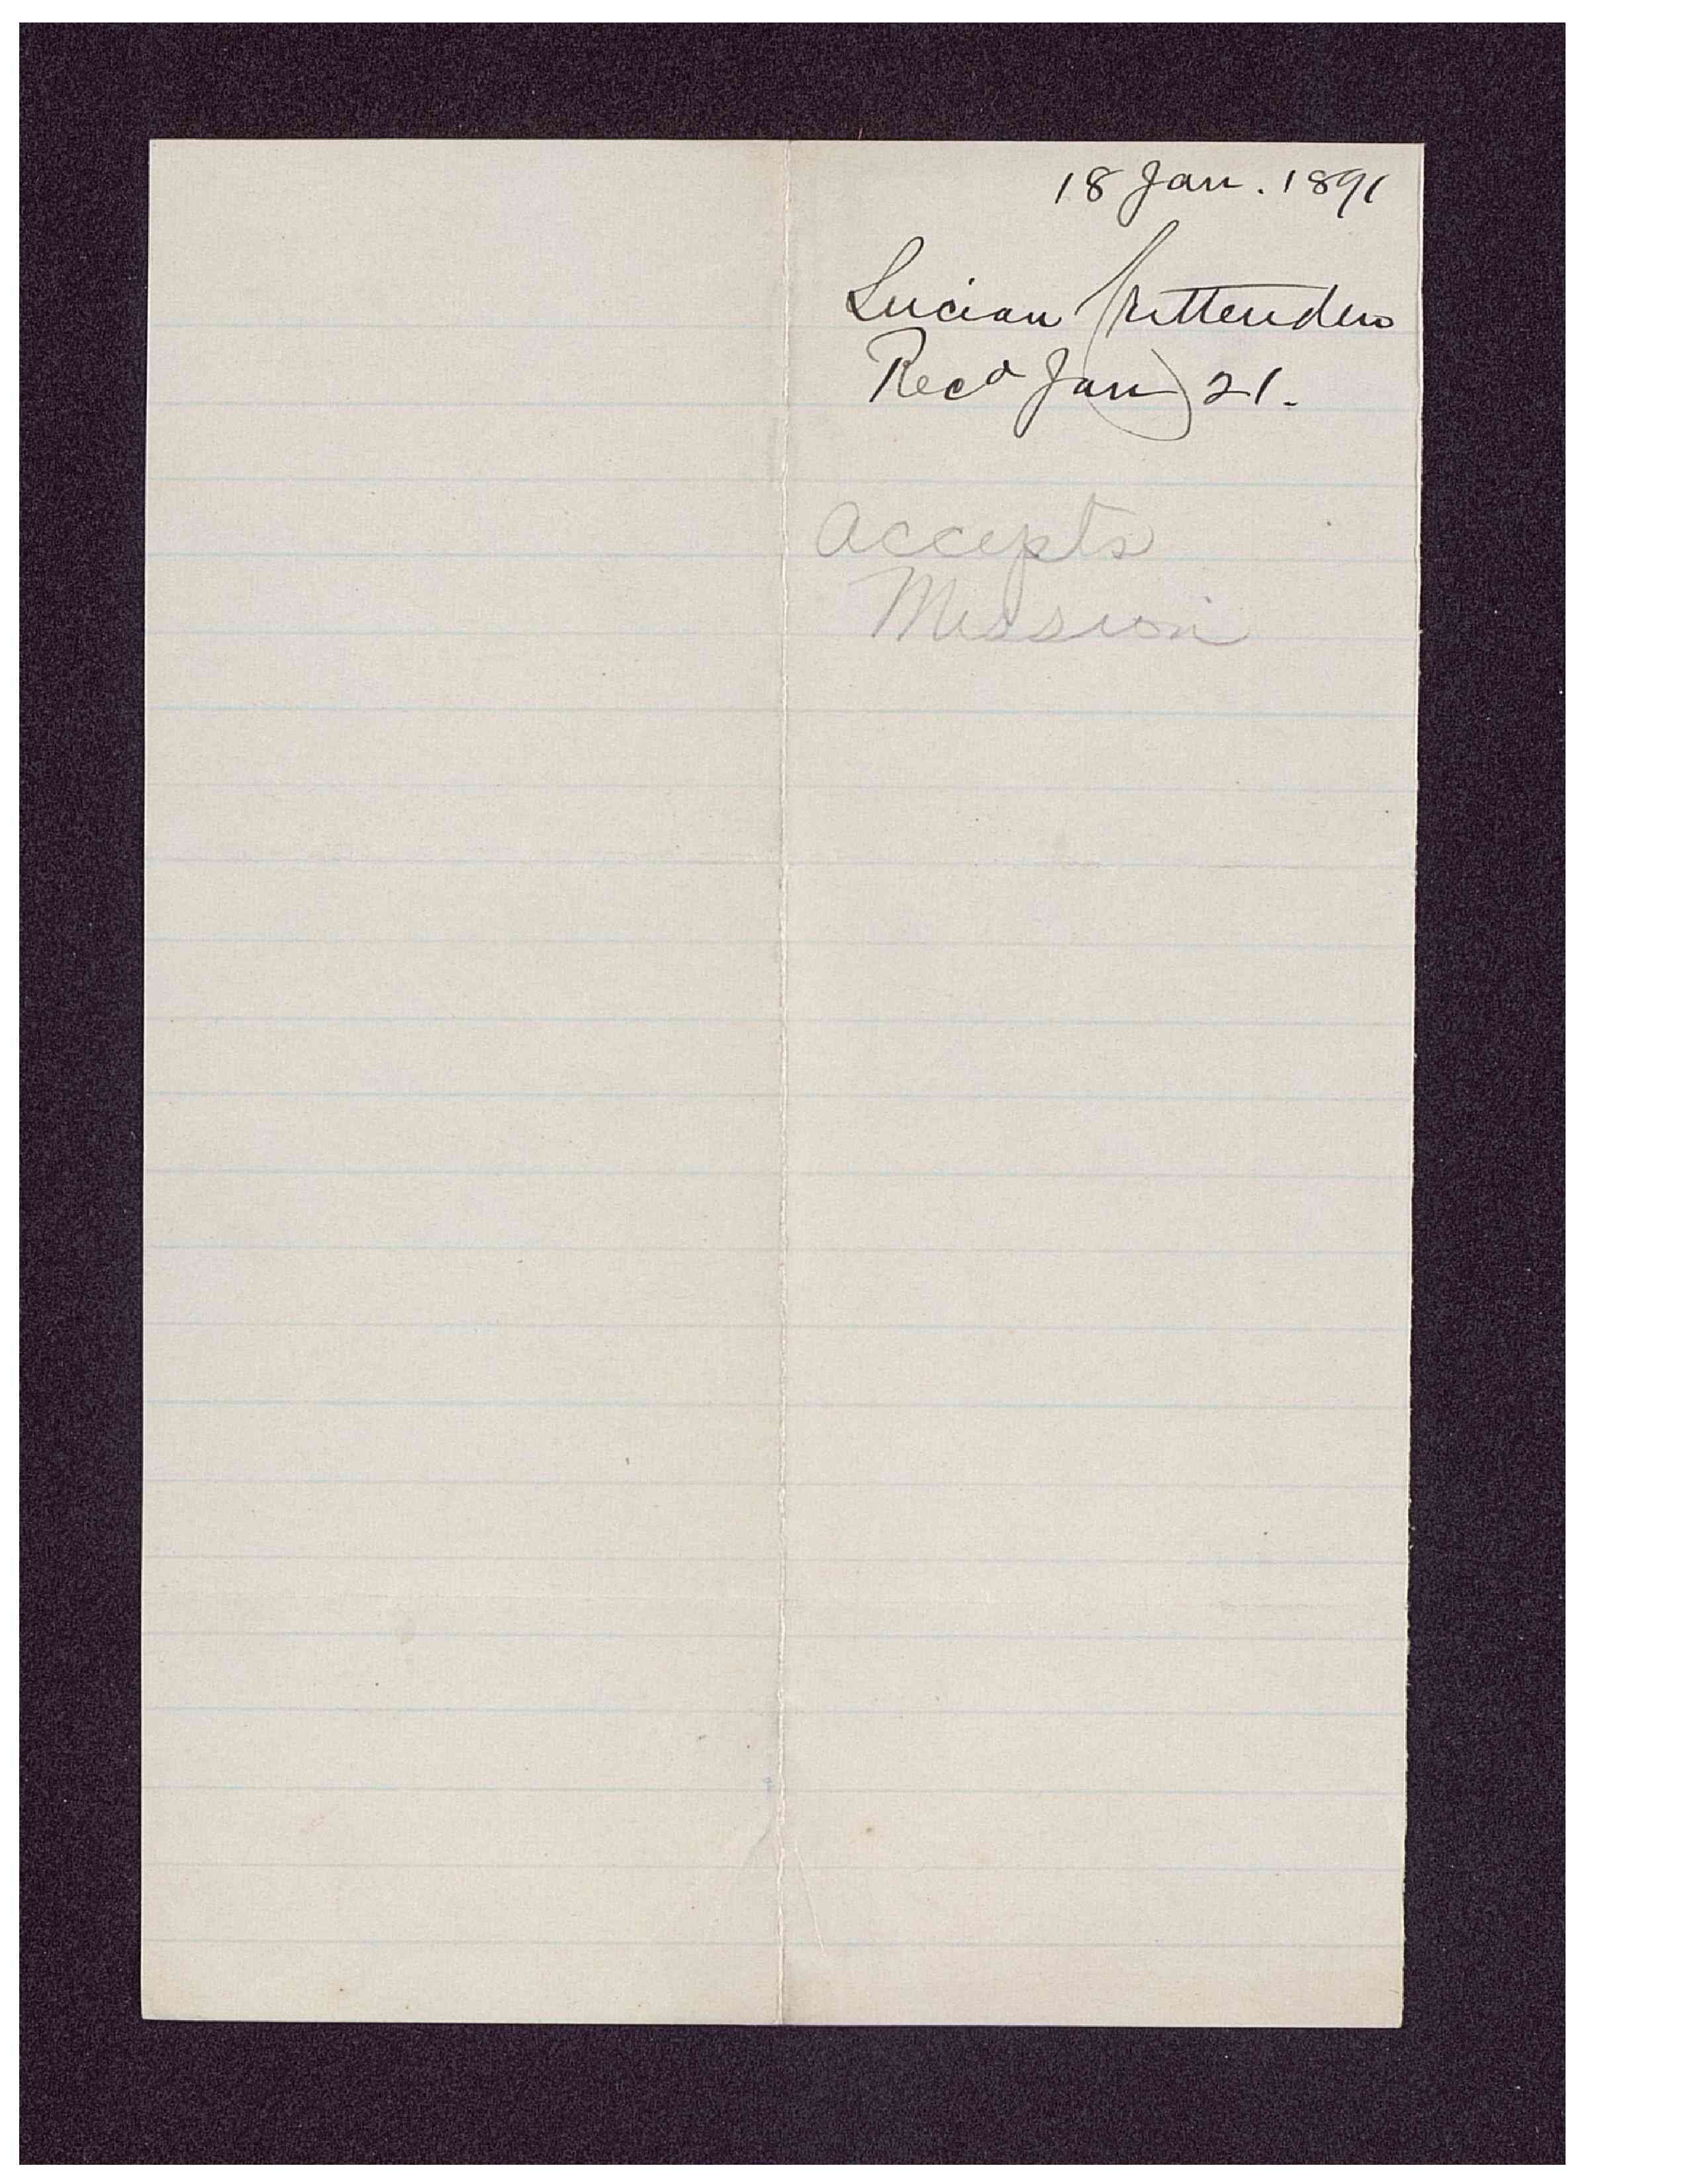 18 Jan. 1891
Lucian Crittenden
Recd Jan 21.
Accepts
Mission